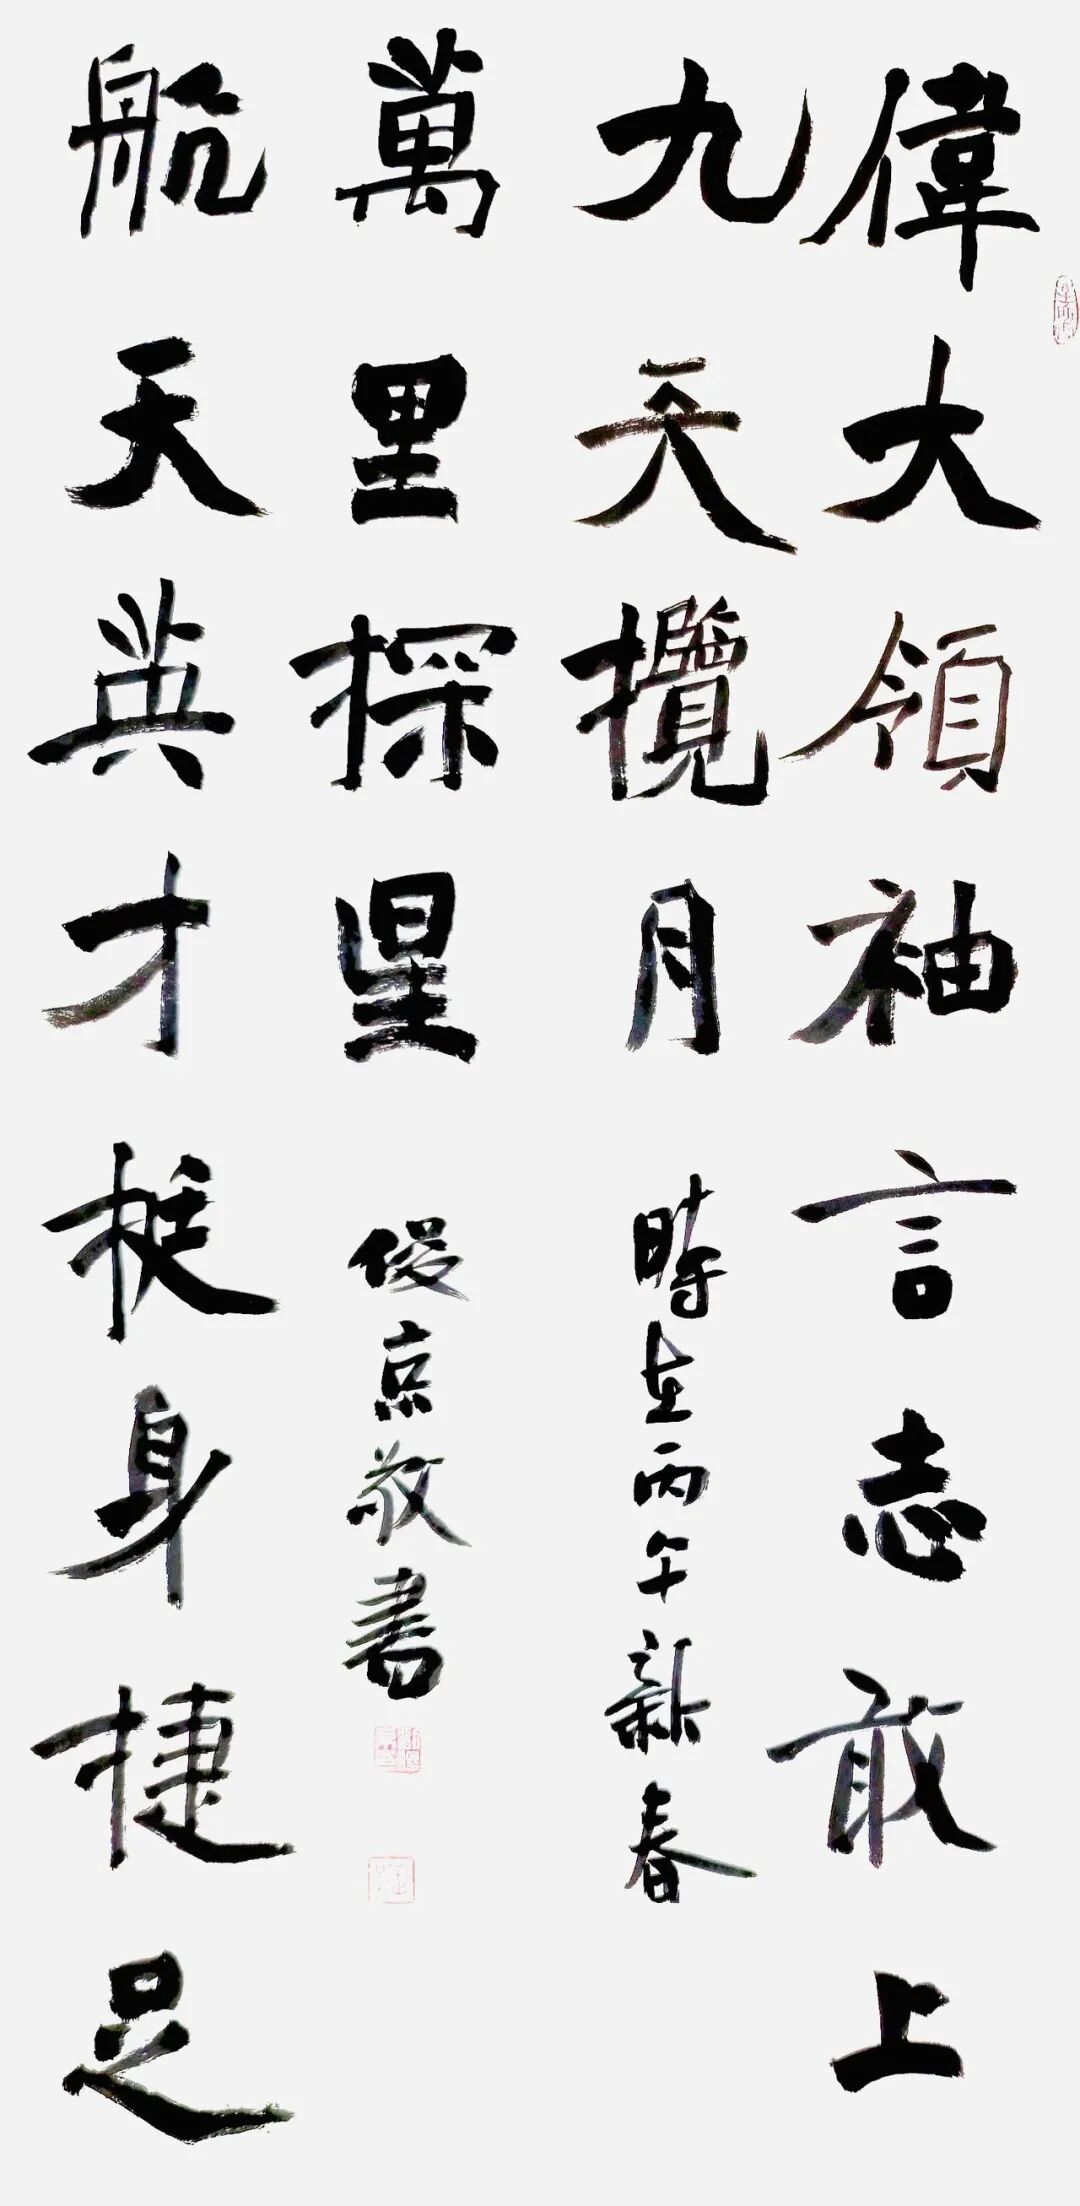 偉大領袖言志敢上
九天攬月
航天英才挺身捷足
萬里探星
時在丙午新春
俊京敬書